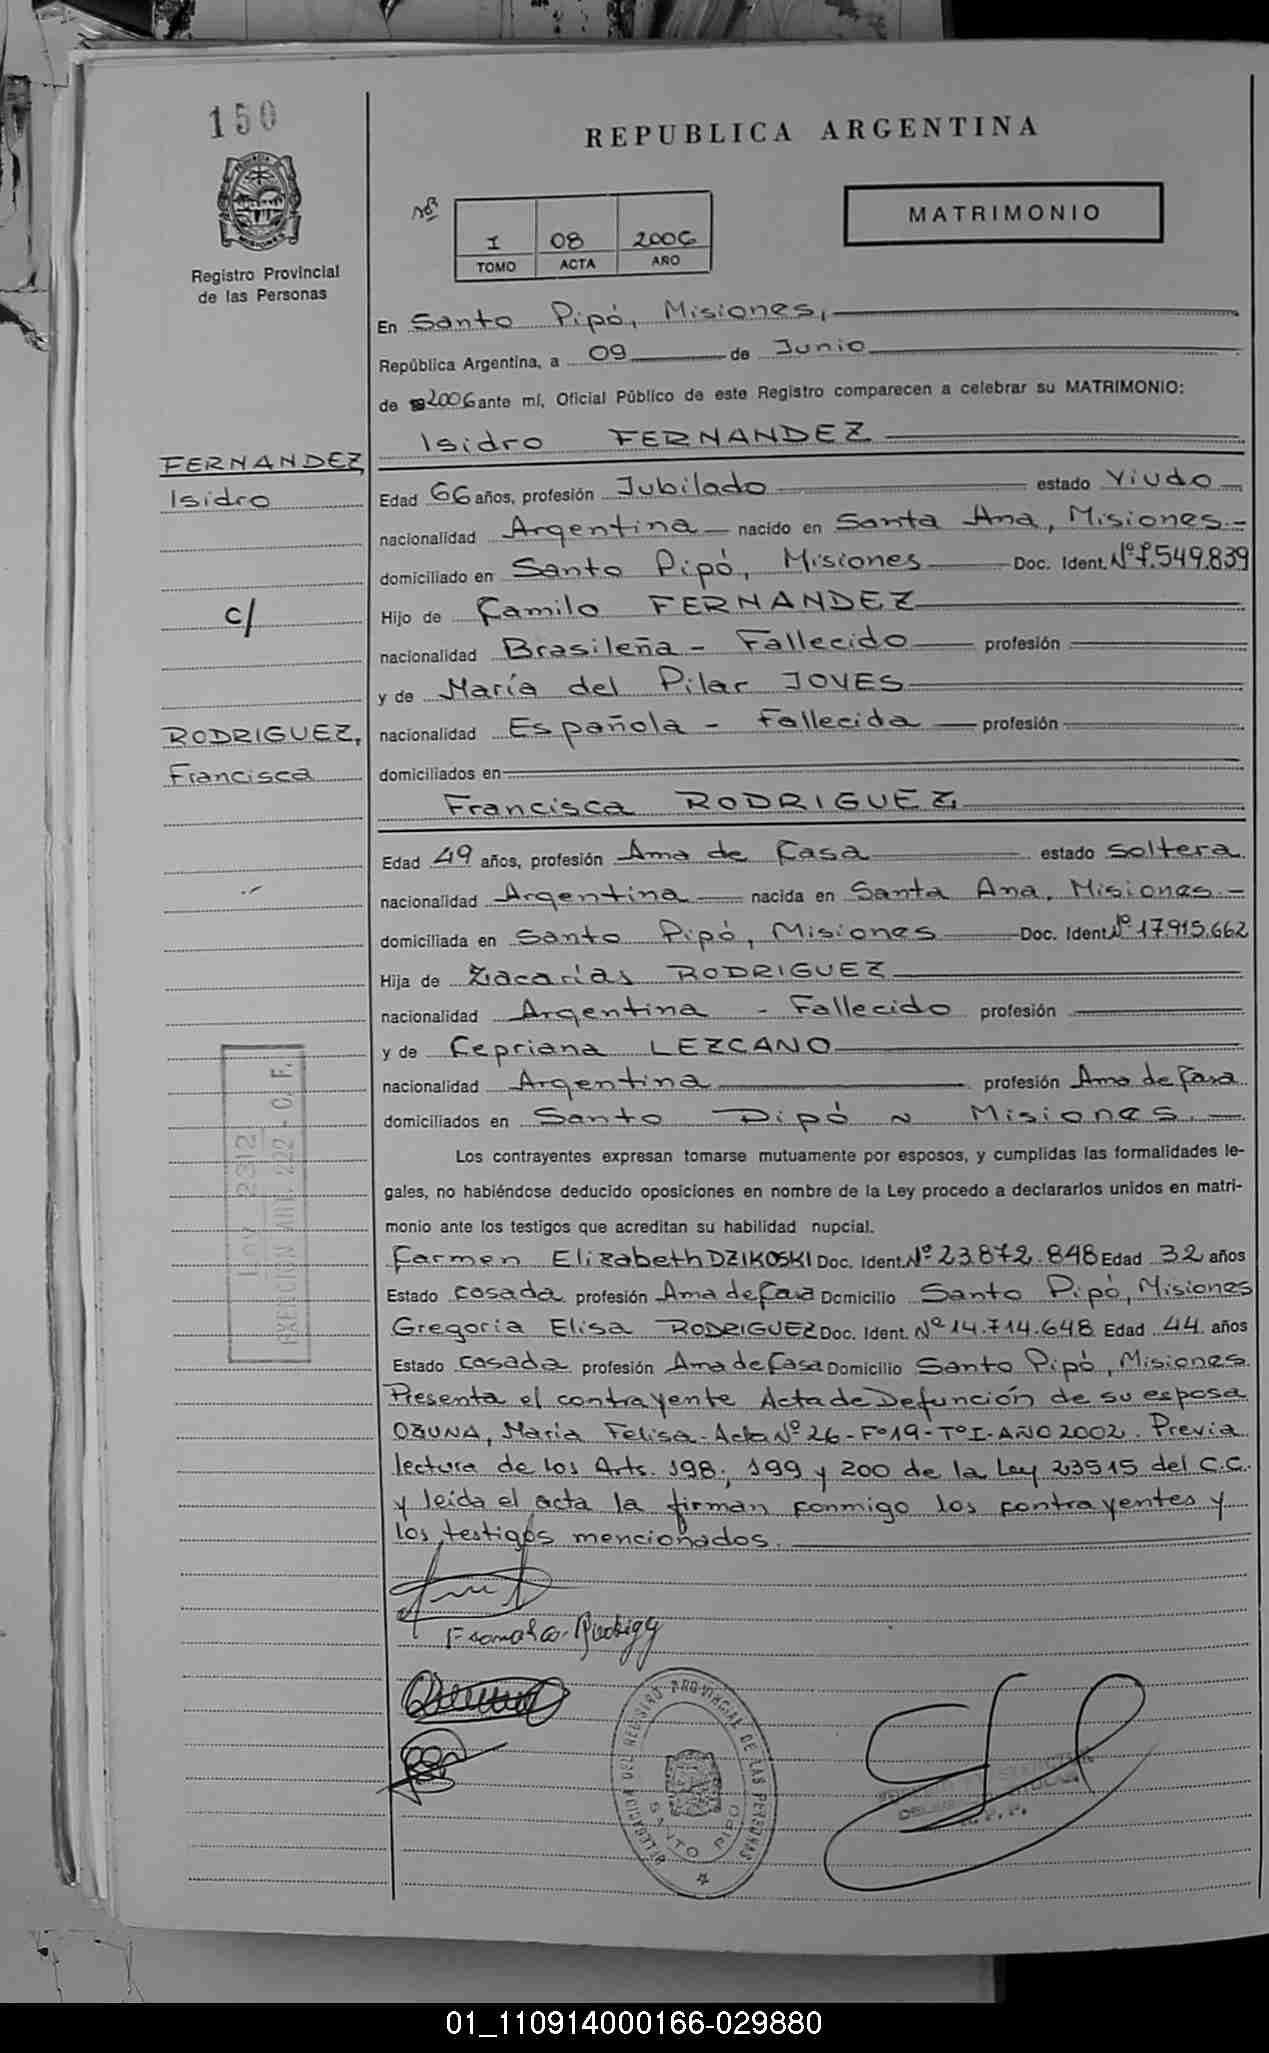 150
REPUBLICA ARGENTINA
MATRIMONIO
I 08 2006
TOMO ACTA AÑO
Registro Provincial
de las Personas
En Santo Pipó, Misiones,
República Argentina, a 09 de Junio
de 2006 ante mí, Oficial Público de este Registro comparecen a celebrar su MATRIMONIO:
Isidro FERNANDEZ
FERNANDEZ,
Isidro
c/
RODRIGUEZ,
Francisca
Edad 66 años, profesión Jubilado estado Viudo
nacionalidad Argentina nacido en Santa Ana, Misiones.-
domiciliado en Santo Pipó, Misiones Doc. Ident. Nº 7.549.839
Hijo de Camilo FERNANDEZ
nacionalidad Brasileña - Fallecido profesión
y de María del Pilar JOVES
nacionalidad Española - Fallecida profesión
domiciliados en
Francisca RODRIGUEZ
Edad 49 años, profesión Ama de Casa estado Soltera
nacionalidad Argentina nacida en Santa Ana, Misiones.-
domiciliada en Santo Pipó, Misiones Doc. Ident. Nº 17.915.662
Hija de Zacarías RODRIGUEZ
nacionalidad Argentina - Fallecido profesión
y de Cepriana LEZCANO
nacionalidad Argentina profesión Ama de Casa
domiciliados en Santo Pipó ~ Misiones.
Los contrayentes expresan tomarse mutuamente por esposos, y cumplidas las formalidades le-
gales, no habiéndose deducido oposiciones en nombre de la Ley procedo a declararlos unidos en matri-
monio ante los testigos que acreditan su habilidad nupcial.
Carmen Elizabeth DZIKOSKI Doc. Ident. Nº 23.872.848 Edad 32 años
Estado casada profesión Ama de Casa Domicilio Santo Pipó, Misiones
Gregoria Elisa RODRIGUEZ Doc. Ident. Nº 14.714.648 Edad 44 años
Estado casada profesión Ama de Casa Domicilio Santo Pipó, Misiones
Presenta el contrayente Acta de Defunción de su esposa
OZUNA, María Felisa. Acta Nº 26 - Fº 19 - Tº I - AÑO 2002. Previa
lectura de los Arts. 198, 199 y 200 de la Ley 23515 del C.C.
y leída el acta la firman conmigo los contrayentes y
los testigos mencionados.
Ley 2312
EXENCION ART. 222 - C. F.
DELEGACION DEL REGISTRO PROVINCIAL DE LAS PERSONAS
SANTO PIPO
01_110914000166-029880